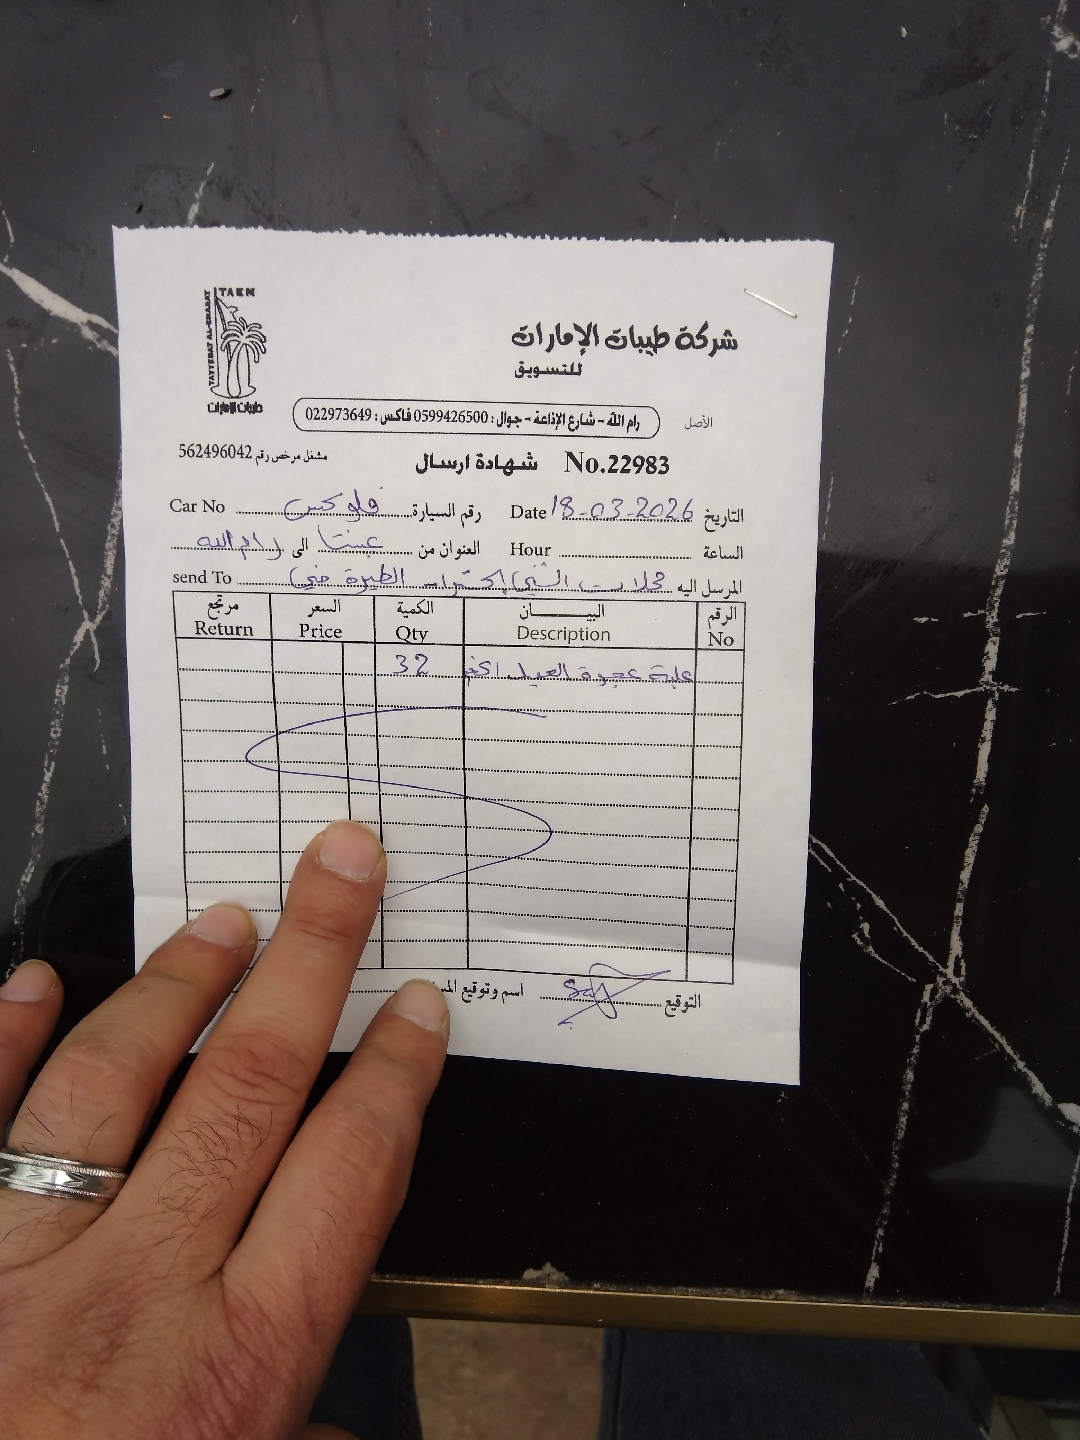 TAEM
TAYYEBAT AL-EMARAT
طيبات الإمارات
شركة طيبات الإمارات
للتسويق
رام الله - شارع الإذاعة - جوال : 0599426500 فاكس : 022973649
الأصل
مشغل مرخص رقم 562496042
شهادة ارسال No.22983
التاريخ 18-03-2026 Date رقم السيارة فلوكس Car No
الساعة Hour العنوان من عبنتا الى رام الله
المرسل اليه محلات الطيرة send To
الرقم البيـــــان الكمية السعر مرتجع
No Description Qty Price Return
علبة عجوة العيد 32
التوقيع اسم وتوقيع